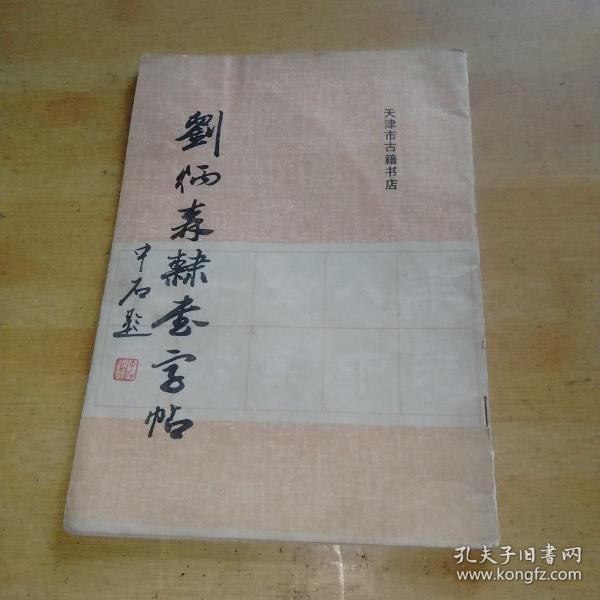 天津市古籍书店
劉炳森隸書字帖
中石题
孔夫子旧书网
www.kongfz.com